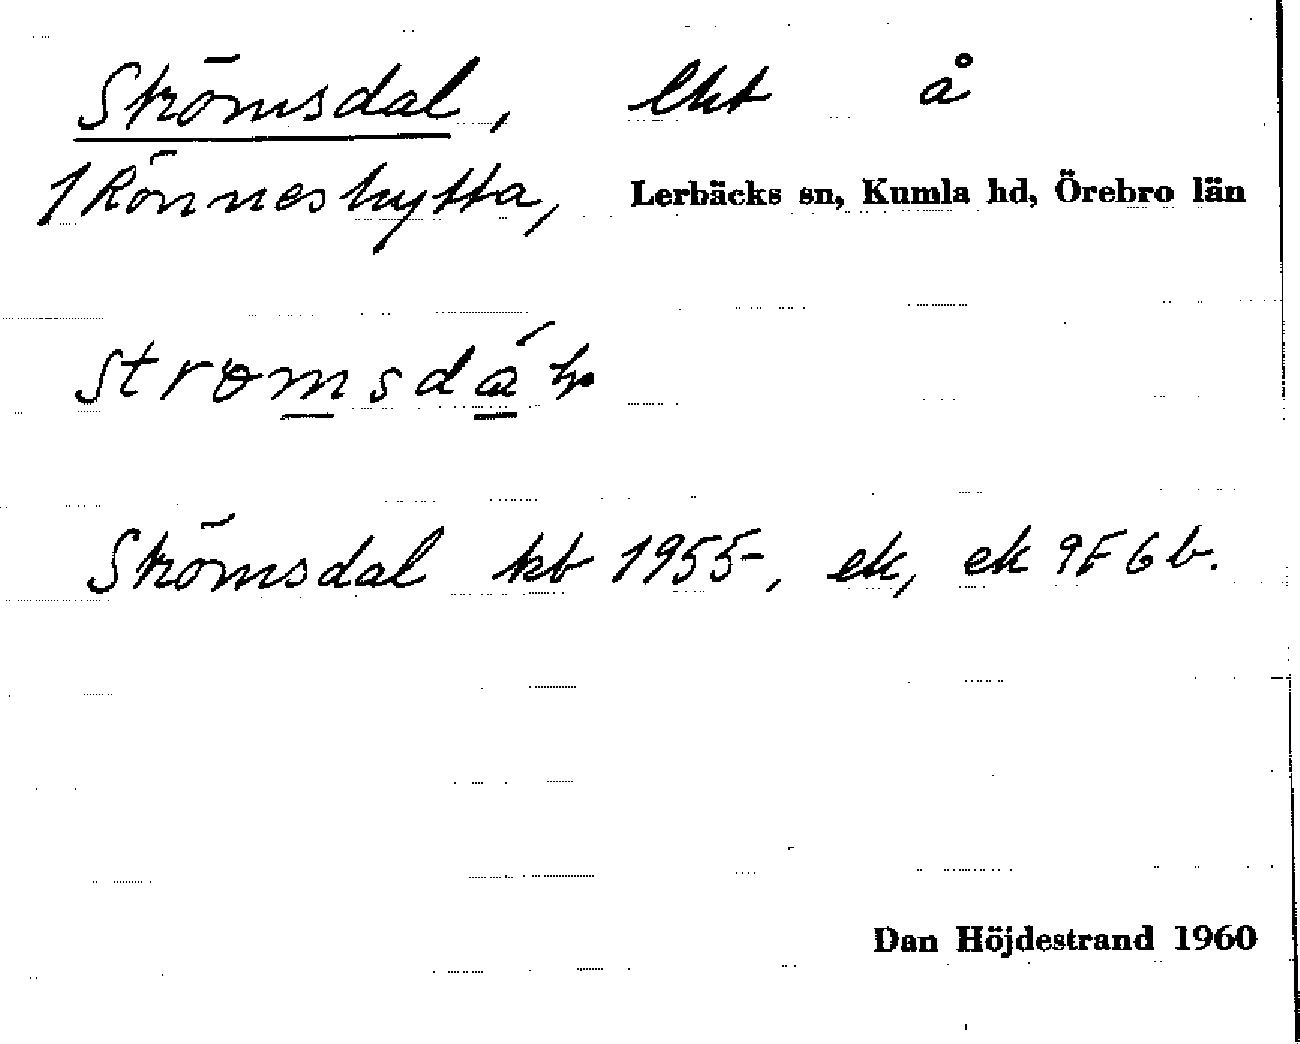 Strömsdal, lht å
1 Rönneshytta, Lerbäcks sn, Kumla hd, Örebro län
Strömsdal kb 1955-, ek, ek 9F6b.
Dan Höjdestrand 1960